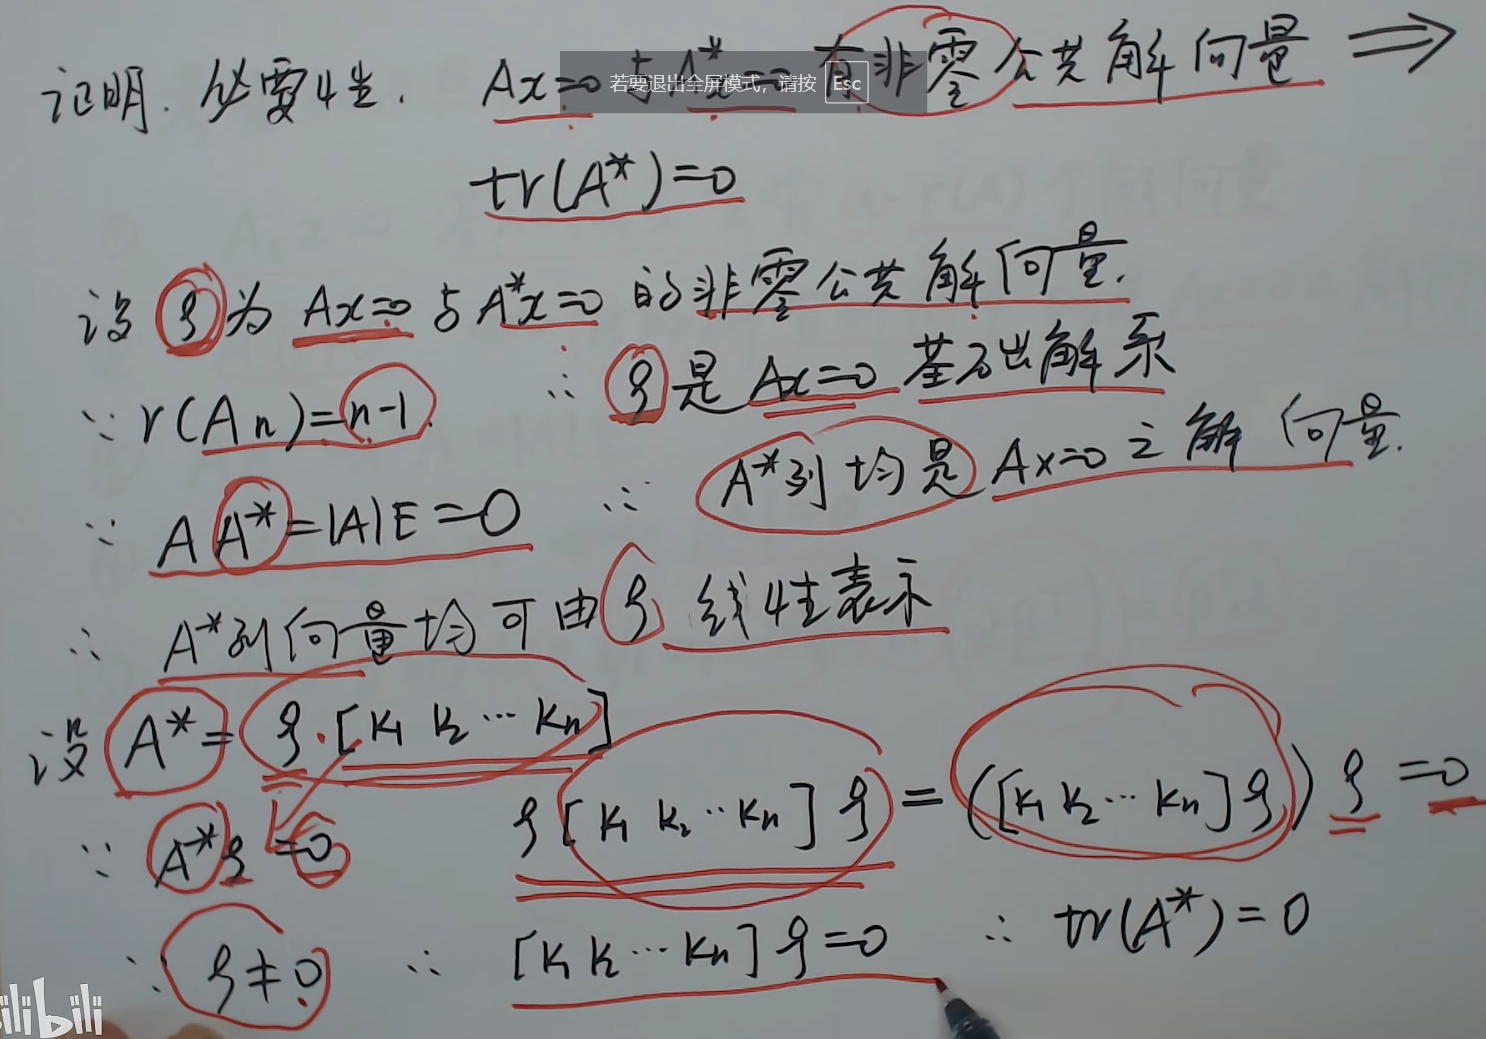 证明. 必要性. Ax=0 与 A*x=0 有非零公共解向量 ⟹
若要退出全屏模式，请按 Esc
tr(A*)=0
设 ξ 为 Ax=0 与 A*x=0 的非零公共解向量.
∵ r(An)=n-1. ∴ ξ 是 Ax=0 基础解系
∵ AA*=|A|E=0 ∴ A*列均是 Ax=0 之解向量.
∴ A*列向量均可由 ξ 线性表示
设 A*=ξ·[k₁ k₂ ··· kn]
∵ A*ξ=0 ξ[k₁ k₂ ·· kn]ξ=([k₁ k₂ ··· kn]ξ)ξ=0
∵ ξ≠0 ∴ [k₁ k₂ ··· kn]ξ=0 ∴ tr(A*)=0
ilibili